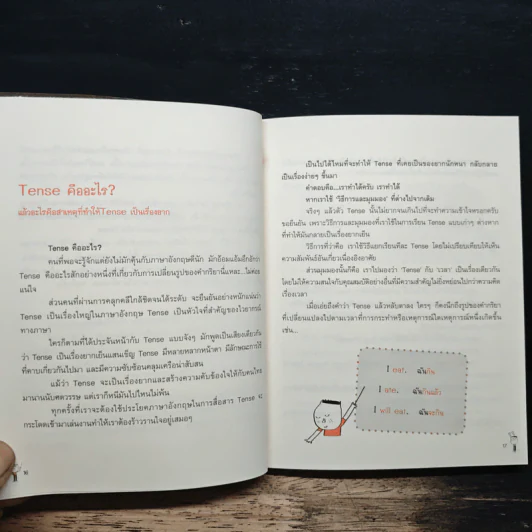 Tense คืออะไร?
แล้วอะไรคือสาเหตุที่ทำให้Tense เป็นเรื่องยาก
Tense คืออะไร?
คนที่พอจะรู้จักแต่ยังไม่มักคุ้นกับภาษาอังกฤษดีนัก มักอ้อมแอ้มอีกอักว่า
Tense คืออะไรสักอย่างหนึ่งที่เกี่ยวกับการเปลี่ยนรูปของคำกริยานี่แหละ...ไม่ค่อย
แน่ใจ
ส่วนคนที่ผ่านการคลุกคลีใกล้ชิดจนได้ระดับ จะยืนยันอย่างหนักแน่นว่า
Tense เป็นเรื่องใหญ่ในภาษาอังกฤษ Tense เป็นหัวใจที่สำคัญของไวยากรณ์
ทางภาษา
ใครก็ตามที่ได้ประจันหน้ากับ Tense แบบจังๆ มักพูดเป็นเสียงเดียวกัน
ว่า Tense เป็นเรื่องยากเย็นแสนเข็ญ Tense มีหลากหลากหน้าตา มีลักษณะการใช้
ที่คาบเกี่ยวกันไปมา และมีความซับซ้อนคลุมเครือน่าสับสน
แม้ว่า Tense จะเป็นเรื่องยากและสร้างความคับข้องใจให้กับคนไทย
มานานนับศตวรรษ แต่เราก็หนีมันไปไหนไม่พ้น
ทุกครั้งที่เราจะต้องใช้ประโยคภาษาอังกฤษในการสื่อสาร Tense จะ
กระโดดเข้ามาเล่นงานทำให้เราต้องร้าวรานใจอยู่เสมอๆ
๖
เป็นไปได้ไหมที่จะทำให้ Tense ที่เคยเป็นของยากนักหนา กลับกลาย
เป็นเรื่องง่ายๆ ขึ้นมา
คำตอบคือ...เราทำได้ครับ เราทำได้
หากเราใช้ 'วิธีการและมุมมอง' ที่ต่างไปจากเดิม
จริงๆ แล้วตัว Tense นั้นไม่ยากจนเกินไปที่จะทำความเข้าใจหรอกครับ
ขอยืนยัน เพราะวิธีการและมุมมองที่เราใช้ในการเรียน Tense แบบเก่าๆ ต่างหาก
ที่ทำให้มันกลายเป็นเรื่องยากเย็น
วิธีการที่ว่าคือ เราใช้วิธีแยกเรียนทีละ Tense โดยไม่เปรียบเทียบให้เห็น
ความสัมพันธ์อันเกี่ยวเนื่องอิงอาศัย
ส่วนมุมมองนั้นก็คือ เราไปมองว่า 'Tense' กับ 'เวลา' เป็นเรื่องเดียวกัน
โดยไม่ให้ความสนใจกับคุณสมบัติอย่างอื่นที่มีความสำคัญไม่ยิ่งหย่อนไปกว่าความคิด
เรื่องเวลา
เมื่อเอ่ยถึงคำว่า Tense แล้วหลับตาลง ใครๆ ก็คงนึกถึงรูปของคำกริยา
ที่เปลี่ยนแปลงไปตามเวลาที่การกระทำหรือเหตุการณ์ใดเหตุการณ์หนึ่งเกิดขึ้น
เช่น...
I eat. ฉันกิน
I ate. ฉันกินแล้ว
I will eat. ฉันจะกิน
๗